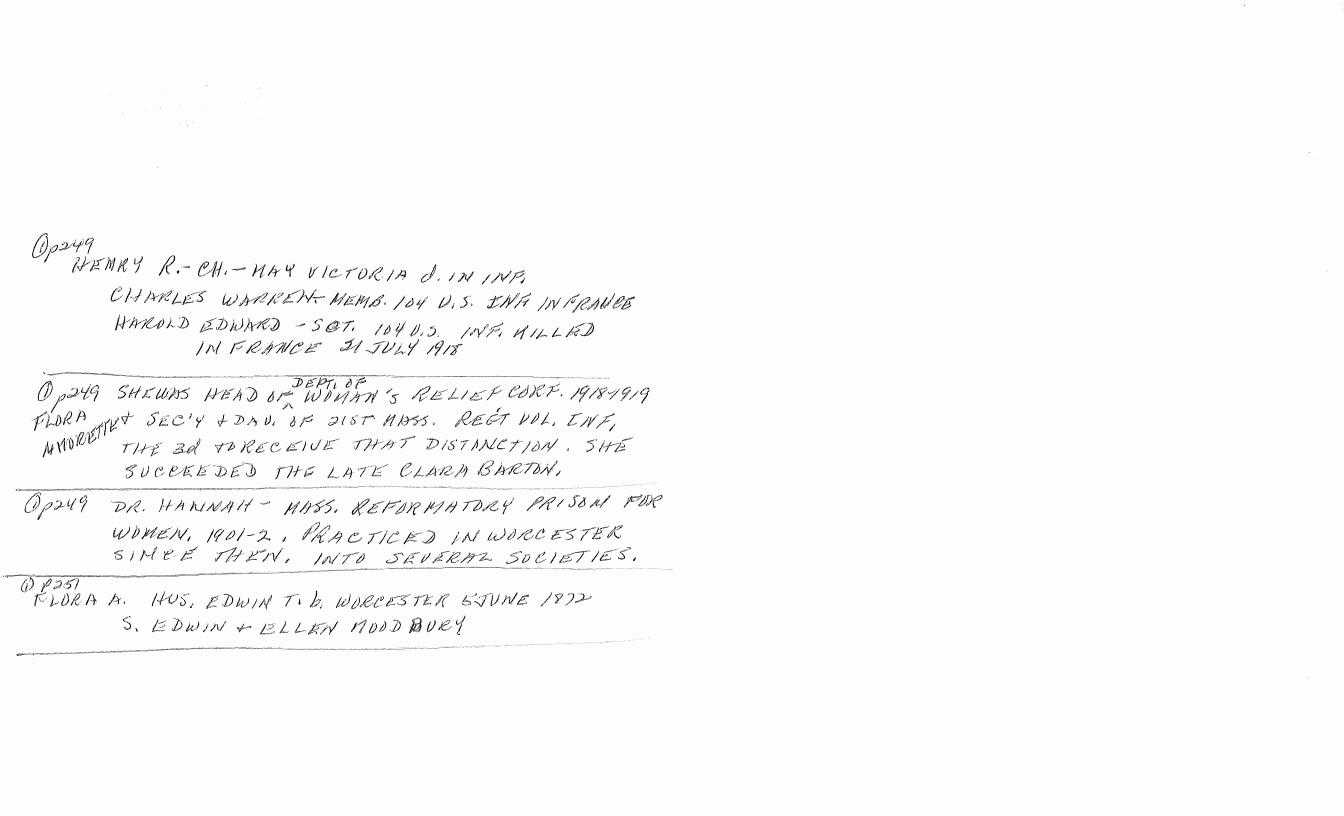 ① p249
HENRY R. - CH. - MAY VICTORIA d. IN INF.
CHARLES WARREN - MEMB. 104 U.S. INF. IN FRANCE
HAROLD EDWARD - SGT. 104 U.S. INF. KILLED
IN FRANCE 21 JULY 1918
① p249 SHE WAS HEAD OF DEPT. OF WOMAN'S RELIEF CORP. 1918-1919
FLORA + SEC'Y + DAU. OF 21ST MASS. REG'T VOL. INF,
THE 3d TO RECEIVE THAT DISTANCTION. SHE
SUCCEEDED THE LATE CLARA BARTON.
① p249 DR. HANNAH - MASS. REFORMATORY PRISON FOR
WOMEN, 1901-2. PRACTICED IN WORCESTER
SINCE THEN. INTO SEVERAL SOCIETIES.
① P251
FLORA A. HUS. EDWIN T. b. WORCESTER 5 JUNE 1872
S. EDWIN + ELLEN WOODBURY